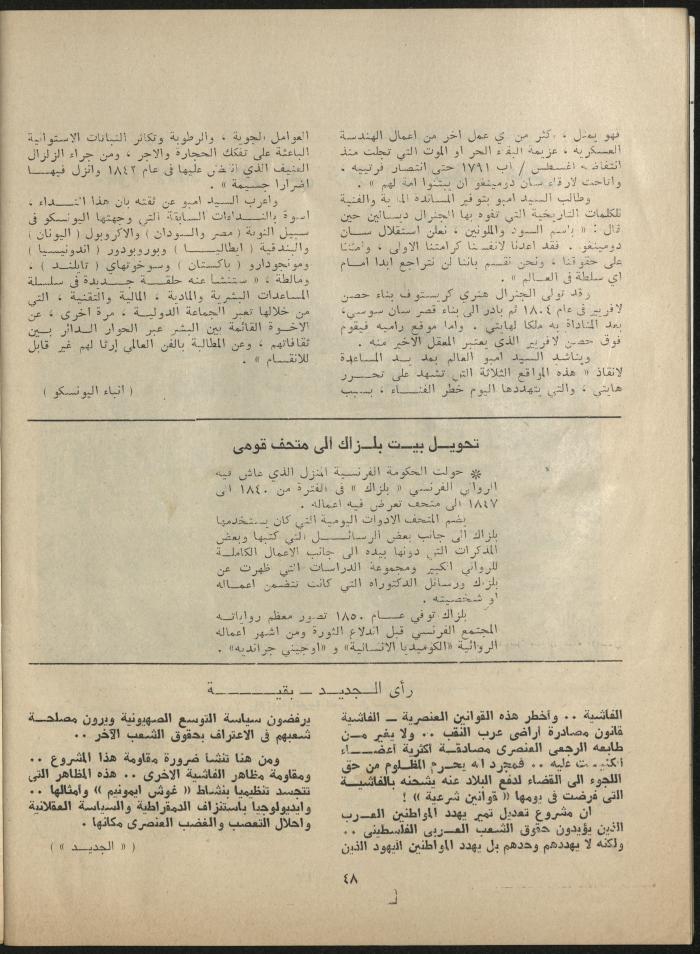 فهو يمثل ، اكثر من اي عمل آخر من اعمال الهندسة
العسكرية ، عزيمة البقاء الحر او الموت التي تجلت منذ
انتفاضة اغسطس / آب ١٧٩١ حتى انتصار فرتييه ،
واتاحت لارقاء سان دومينغو ان يبنوا امة لهم » .
وطالب السيد امبو بتوفير المساندة المالية والفنية
للكلمات التاريخية التي تفوه بها الجنرال ديسالين حين
قال : « باسم السود والملونين ، نعلن استقلال سان
دومينغو . فقد اعدنا لانفسنا كرامتنا الاولى ، وأمنّا
على حقوقنا ، ونحن نقسم باننا لن نتراجع ابدا امام
اي سلطة في العالم » .
وقد تولى الجنرال هنري كريستوف بناء حصن
لافريير في عام ١٨٠٤ ثم بادر الى بناء قصر سان سوسي،
بعد المناداة به ملكا لهايتي . واما موقع راميه فيقوم
فوق حصن لافريير الذي يعتبر المعقل الاخير منه .
ويناشد السيد امبو العالم بمد يد المساعدة
لانقاذ « هذه المواقع الثلاثة التي تشهد على تحرر
هايتي ، والتي يتهددها اليوم خطر الفناء ، بسبب
العوامل الجوية ، والرطوبة وتكاثر النباتات الاستوائية
الباعثة على تفكك الحجارة والآجر ، ومن جراء الزلزال
العنيف الذي انقض عليها في عام ١٨٤٢ وانزل فيها
اضرارا جسيمة » .
واعرب السيد امبو عن ثقته بان هذا النداء ،
اسوة بالنداءات السابقة التي وجهتها اليونسكو في
سبيل النوبة ( مصر والسودان ) والاكروبول ( اليونان )
والبندقية ( ايطاليا ) وبوروبودور ( اندونيسيا )
ومونجودارو ( باكستان ) وسوخوتهاي ( تايلند ) ،
ومالطة ، « ستنشأ عنه حلقة جديدة في سلسلة
المساعدات البشرية والمادية ، المالية والتقنية ، التي
من خلالها تعبر الجماعة الدولية ، مرة اخرى ، عن
الاخوة القائمة بين البشر عبر الحوار الدائر بين
ثقافاتهم ، وعن المطالبة بالفن العالمي إرثا لهم غير قابل
للانقسام » .
( انباء اليونسكو )
تحويل بيت بلزاك الى متحف قومي
* حولت الحكومة الفرنسية المنزل الذي عاش فيه
الروائي الفرنسي « بلزاك » في الفترة من ١٨٤٠ الى
١٨٤٧ الى متحف تعرض فيه اعماله .
يضم المتحف الادوات اليومية التي كان يستخدمها
بلزاك الى جانب بعض الرسائل التي كتبها وبعض
المذكرات التي دونها بيده الى جانب الاعمال الكاملة
للروائي الكبير ومجموعة الدراسات التي ظهرت عن
بلزاك ورسائل الدكتوراه التي كانت تتضمن اعماله
او شخصيته .
بلزاك توفي عام ١٨٥٠ تصور معظم رواياته
المجتمع الفرنسي قبل اندلاع الثورة ومن اشهر اعماله
الروائية «الكوميديا الانسانية» و «اوجيني جرانديه» .
رأى الجديد — بقية
الفاشية .. وأخطر هذه القوانين العنصرية — الفاشية
قانون مصادرة أراضي عرب النقب .. ولا يغير من
طابعه الرجعي العنصري مصادقة أكثرية أعضاء
الكنيست عليه .. فمجرد انه يحرم المظلوم من حق
اللجوء الى القضاء لدفع البلاد عنه يشحنه بالفاشية
التي فرضت في يومها « قوانين شرعية » !
ان مشروع تعديل تمير يهدد المواطنين العرب
الذين يؤيدون حقوق الشعب العربي الفلسطيني ..
ولكنه لا يهددهم وحدهم بل يهدد المواطنين اليهود الذين
يرفضون سياسة التوسع الصهيونية ويرون مصلحة
شعبهم في الاعتراف بحقوق الشعب الآخر ..
ومن هنا تنشأ ضرورة مقاومة هذا المشروع ..
ومقاومة مظاهر الفاشية الاخرى .. هذه المظاهر التي
تتجسد تنظيميا بنشاط « غوش ايمونيم » وأمثالها ..
وايديولوجيا باستنزاف الدمقراطية والسياسة العقلانية
واحلال التعصب والغضب العنصري مكانها .
( « الجديد » )
٤٨